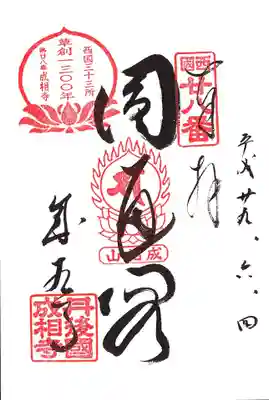 奉拝
平成廿九、六、四
西国廿八番
西国三十三所
草創一三〇〇年
第廿八番 成相寺
圓通閣
成相山
成相寺
丹後國
成相寺